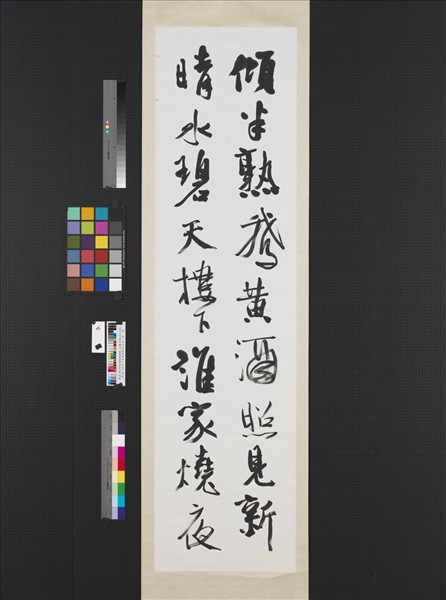 傾半熟鵝黃酒照見新
晴水碧天樓下誰家燒夜